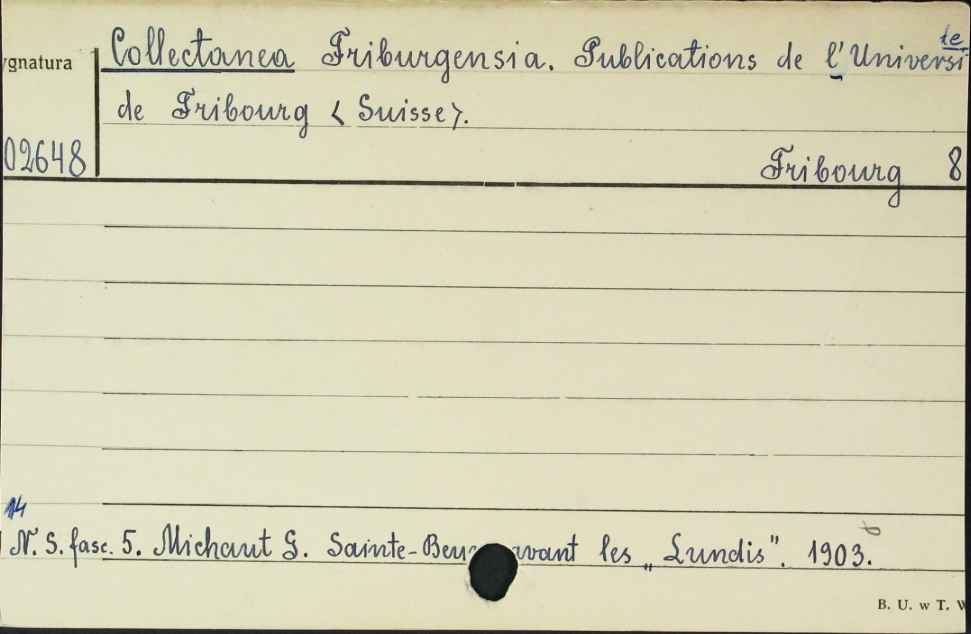 ygnatura
Collectanea Friburgensia. Publications de l'Universite
de Fribourg < Suisse >.
02648
Fribourg 8
14
N. S. fasc. 5. Michaut G. Sainte-Beu avant les „Lundis". 1903.
B. U. w T.